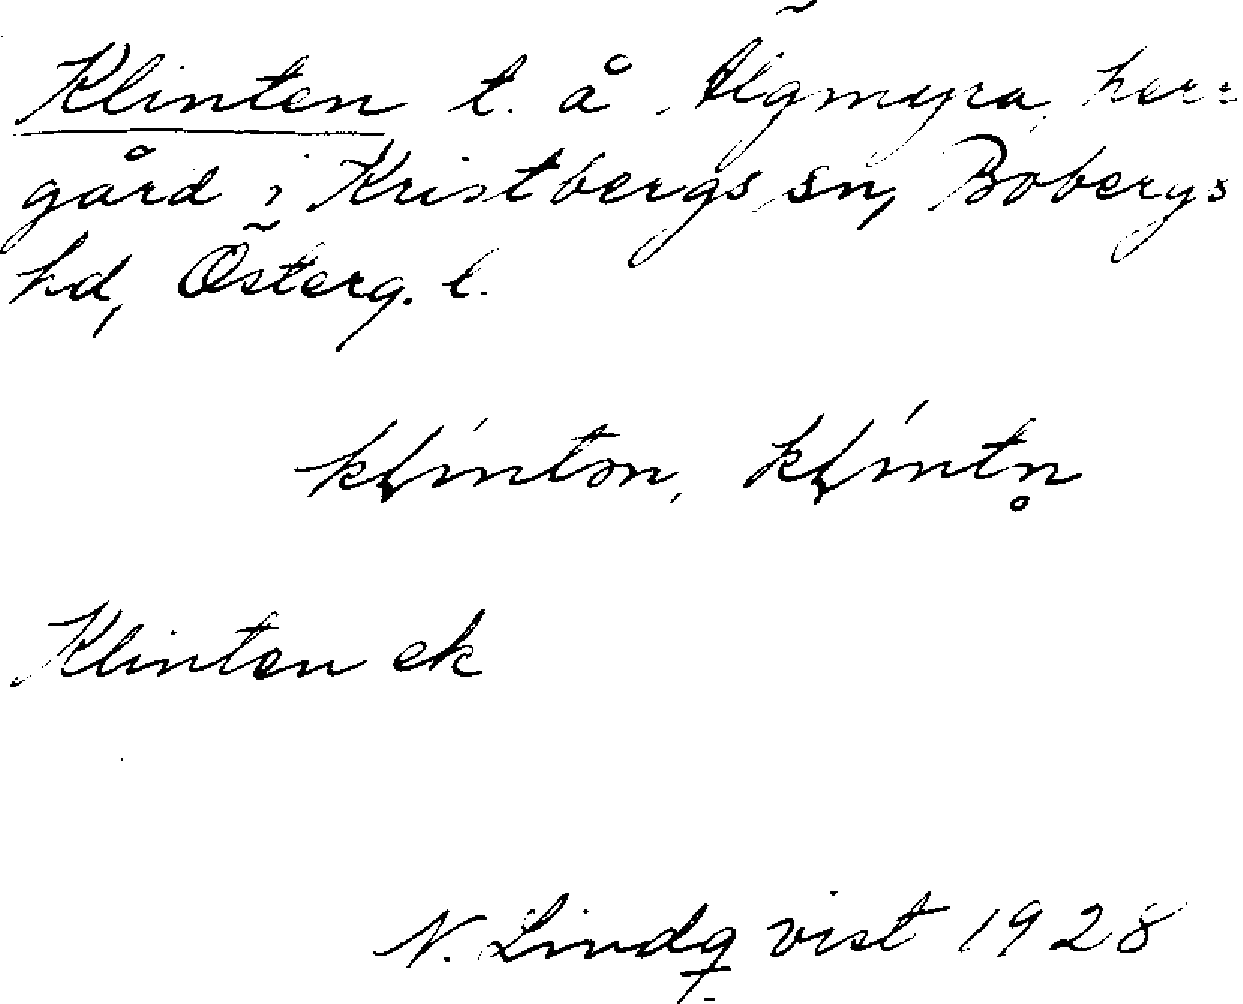 Klinten t. å Älgmyra, herr-
gård i Kristbergs sn, Bobergs
hd, Österg. l.
klínton, klíntn̥
Klinten ek
N. Lindqvist 1928